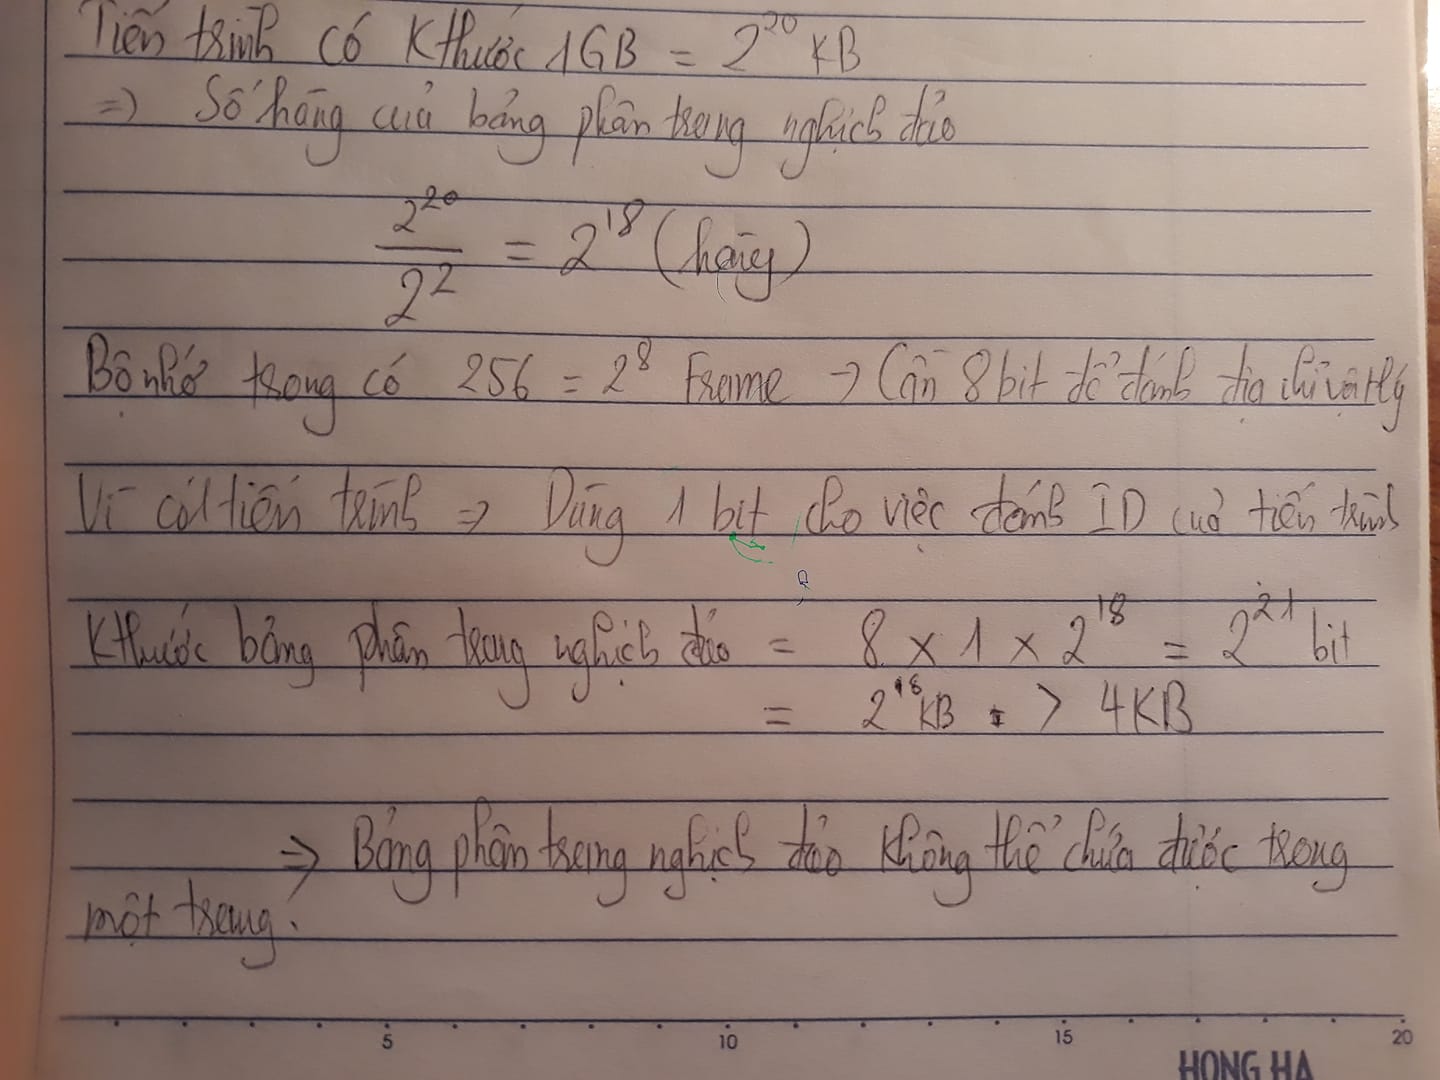 Tiến trình có Kthước 1GB = 2^20 KB
=> Số hàng của bảng phân trang nghịch đảo
2^20 / 2^2 = 2^18 (hàng)
Bộ nhớ trong có 256 = 2^8 Frame → Cần 8 bit để đánh địa chỉ vật lý
Vì có 1 tiến trình => Dùng 1 bit cho việc đánh ID của tiến trình
Kthước bảng phân trang nghịch đảo = 8 × 1 × 2^18 = 2^21 bit
= 2^18 KB > 4KB
=> Bảng phân trang nghịch đảo không thể chứa được trong
một trang.
5 10 15 20
HONG HA